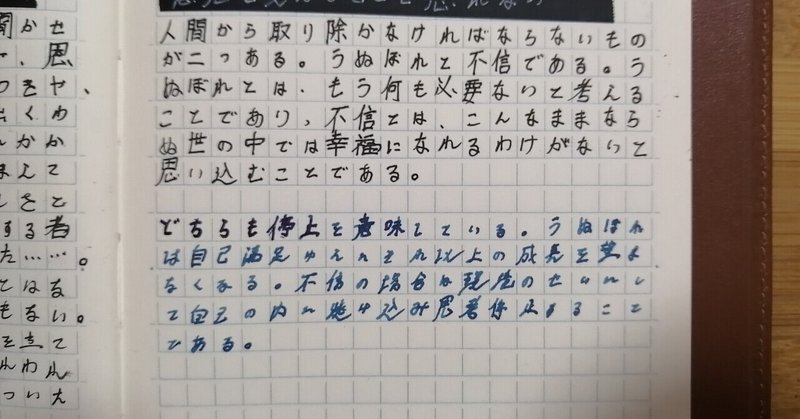 人間から取り除かなければならないもの
が二つある。うぬぼれと不信である。う
ぬぼれとは、もう何も必要ないと考える
ことであり、不信とは、こんなままなら
ぬ世の中では幸福になれるわけがないと
思い込むことである。
どちらも停止を意味している。うぬぼれ
は自己満足ゆえにそれ以上の成長を望ま
なくなる。不信の場合は現状のせいにし
て自己の内に逃げ込み思考停止すること
である。
聞かせ
、恩
つきや、
くわ
んかか
まえて
しさと
する者
た……。
とはな
もない。
を立て
われ
ついた